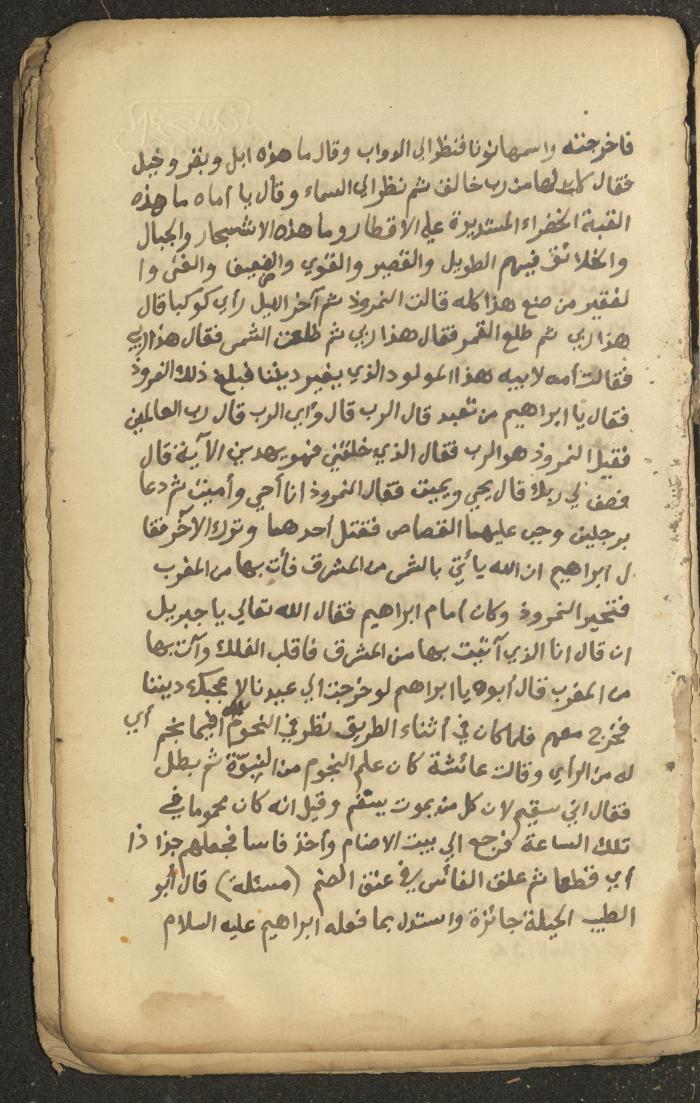 فاخرجته واسمها نونا فنظر الي الدواب وقال ما هذه ابل وبقر وخيل
فقال لابد لها من رب خالق ثم نظر الي السماء وقال يا أماه ما هذه
القبة الخضراء المستديرة علي الاقطار وما هذه الاشجار والجبال
والخلائق فيهم الطويل والقصير والقوي والضعيف والغني وا
لفقير من صنع هذا كله قالت النمروذ ثم آخر الليل رأي كوكبا قال
هذا ربي ثم طلع القمر فقال هذا ربي ثم طلعت الشمس فقال هذا ربي
فقالت أمه لابيه هذا المولود الذي يغير ديننا فبلغ ذلك النمروذ
فقال يا ابراهيم من تعبد قال الرب قال وأي الرب قال رب العالمين
فقيل النمروذ هو الرب فقال الذي خلقني فهو يهدين الآية قال
فصف لي ربك قال يحيي ويميت فقال النمروذ انا أحي وأميت ثم دعا
برجلين وجب عليهما القصاص فقتل أحدهما وترك الآخر فقا
ل ابراهيم ان الله يأتي بالشمس من المشرق فأت بها من المغرب
فتحير النمروذ وكان أمام ابراهيم فقال الله تعالي يا جبريل
ان قال انا الذي آتيت بها من المشرق فاقلب الفلك وآت بها
من المغرب قال أبوه يا ابراهيم لو خرجت الي عيدنا لاعجبك ديننا
فخرج معهم فلما كان في أثناء الطريق نظر في النجوم أي فيما نجم أي
له من الرأي وقالت عائشة كان علم النجوم من النبوة ثم بطل
فقال اني سقيم لان كل من يموت يسقم وقيل انه كان محموما في
تلك الساعة فرجع الي بيت الاصنام وأخذ فاسا فجعلهم جذا ذا
أي قطعا ثم علق الفأس في عنق الصنم (مسئلة) قال أبو
الطيب الحيلة جائزة واستدل بما فعله ابراهيم عليه السلام